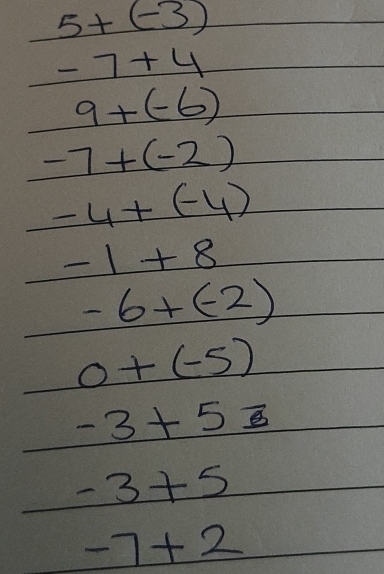 5+(-3)
-7+4
9+(-6)
-7+(-2)
-4+(-4)
-1+8
-6+(-2)
0+(-5)
-3+5
-3+5
-7+2